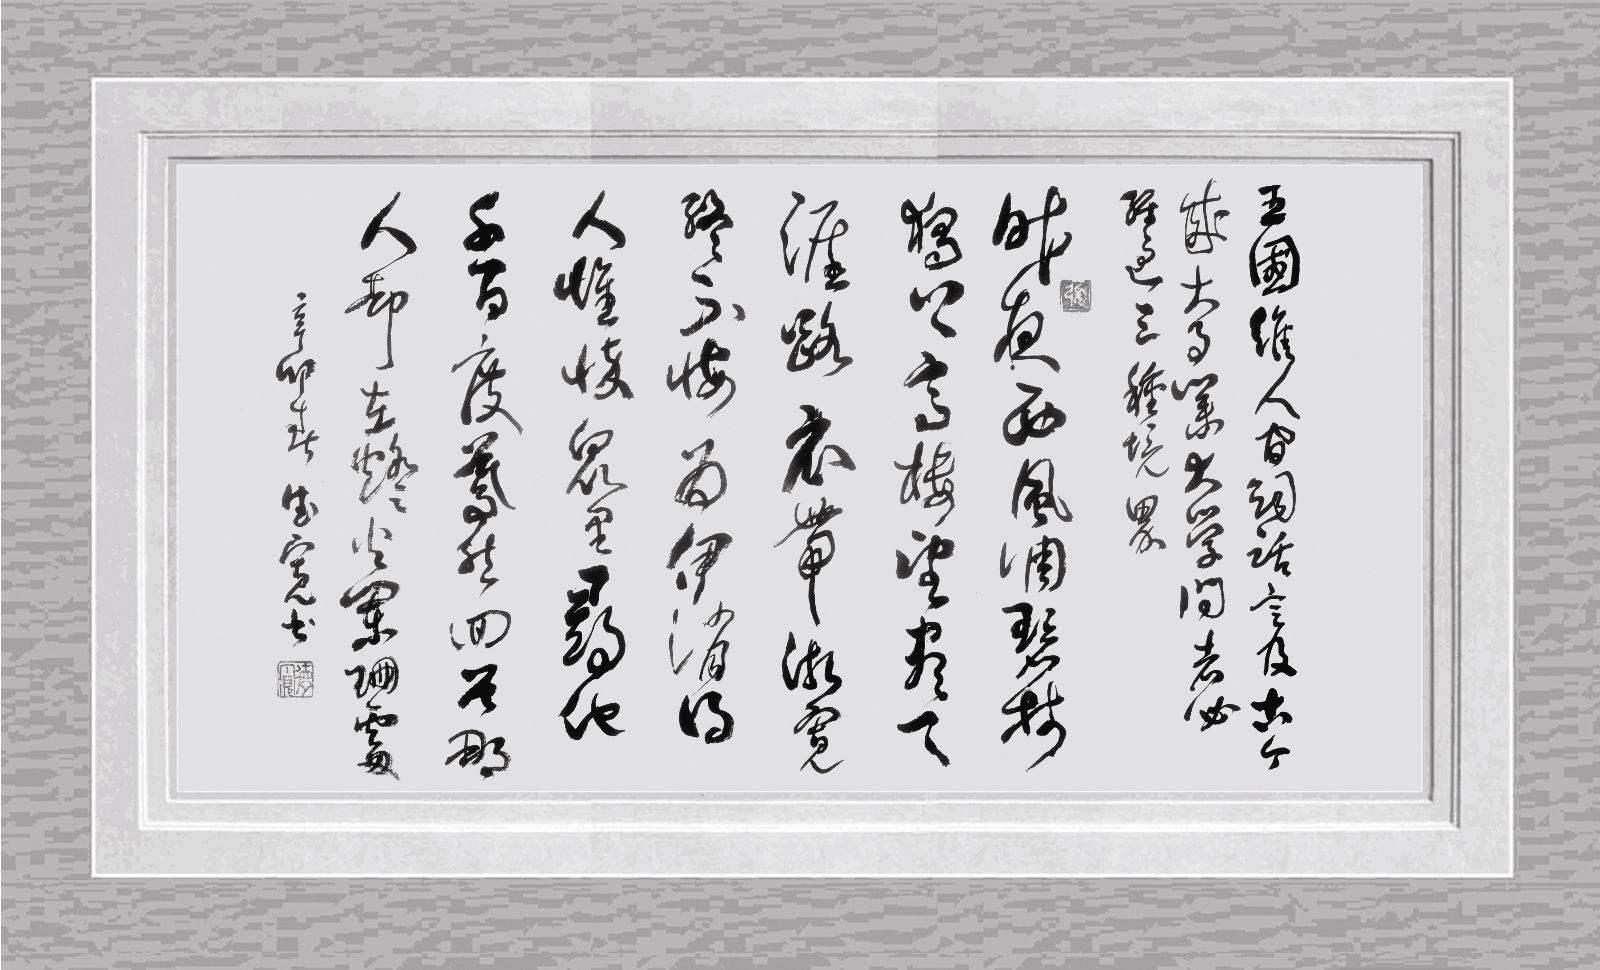 王國維人间詞話言及古今
成大事業大学问者必
經過三種境界
昨夜西風凋碧樹
獨上高樓望盡天
涯路衣帶漸寬
終不悔為伊消得
人憔悴眾里尋他
千百度驀然回首那
人却在燈火闌珊處
辛卯春德寬书